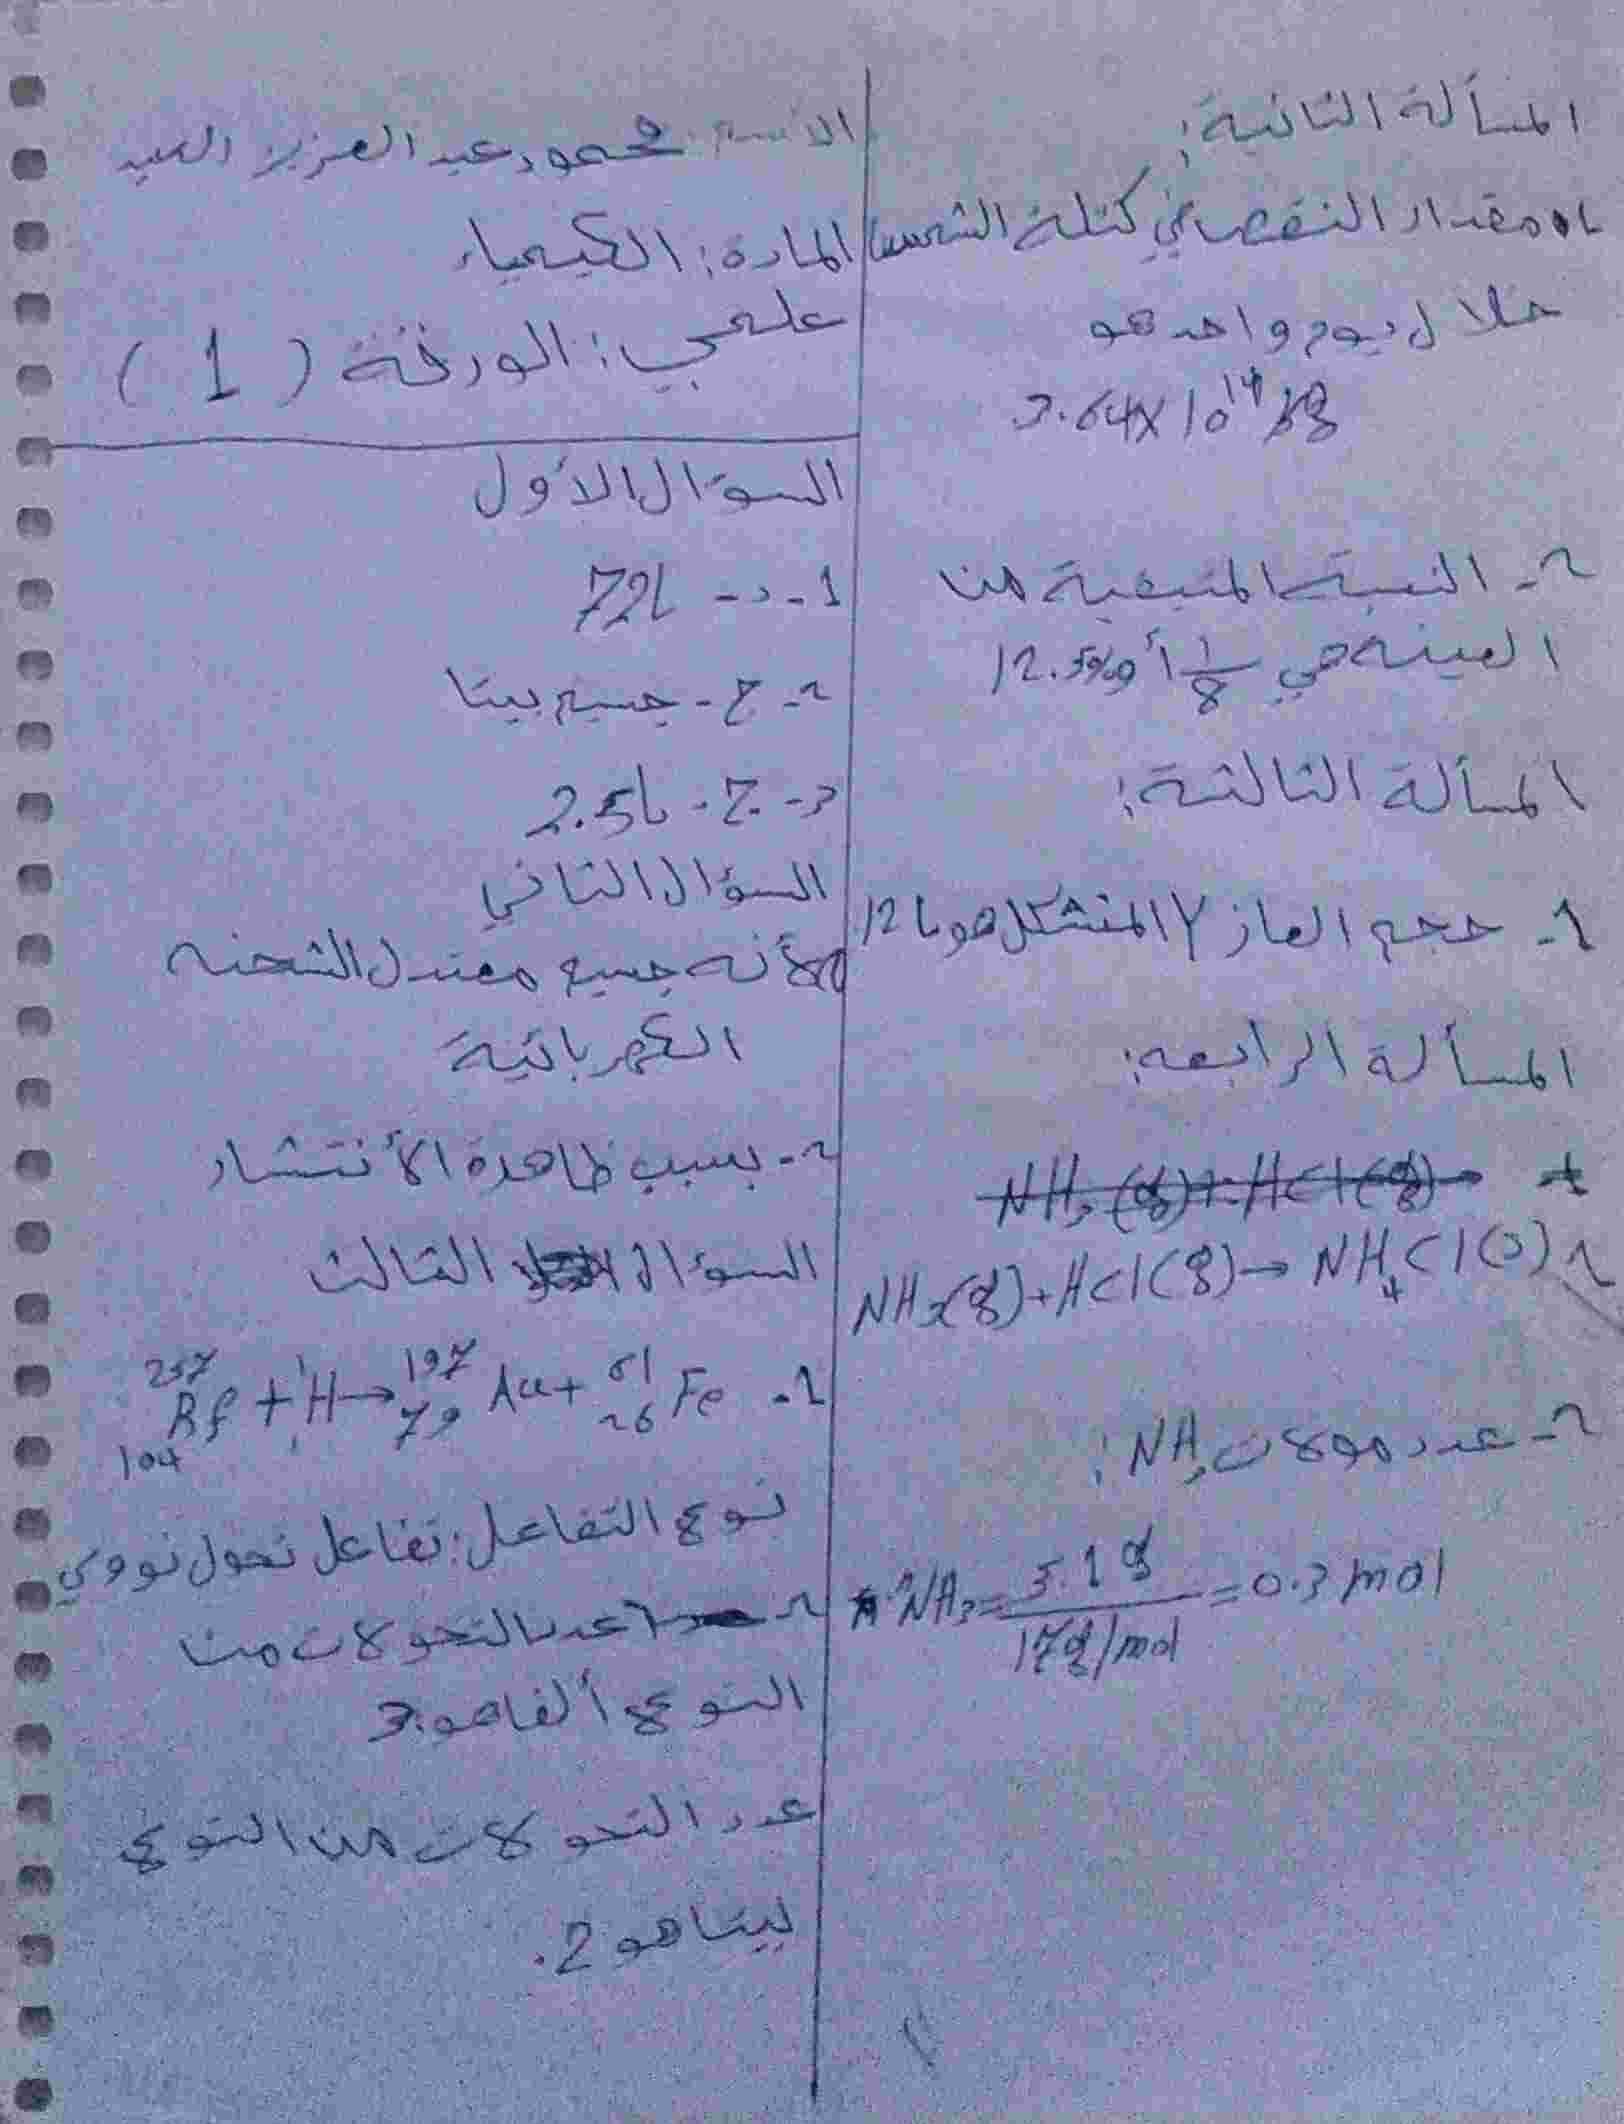 الاسم: محمود عبد العزيز العبيد
المادة: الكيمياء
علمي: الورقة (1)
السوؤال الأول
1- د- 72L
٢- ج- جسيم بيتا
٣- ج- 2.5L
السؤال الثاني
لأنه جسيم معتدل الشحنه
الكهربائية
٢- بسبب ظاهرة الأنتشار
السوؤال الثالث
1- ²⁵⁷₁₀₄Rf + ¹₁H → ¹⁹⁷₇₉Au + ⁶¹₂₆Fe
نوع التفاعل: تفاعل تحول نووي
٢- عدد التحولات من
النوع ألفا هو 3
عدد التحولات من النوع
بيتا هو 2.
المسألة الثانية:
مقدار النقص في كتلة الشمس
خلال يوم واحد هو
3.64x10¹⁴ kg
٢- النسبة المتبقية من
العينه هي 1/8 أو 12.5%
المسألة الثالثة:
1- حجم الغاز ٢ المتشكل هو 12L
المسألة الرابعه:
NH₃(g)+HCl(g)
٢ NH₃(g)+HCl(g)→NH₄Cl(s)
٢- عدد مولات NH₃:
n NH₃= 5.1g / 17g/mol = 0.3 mol